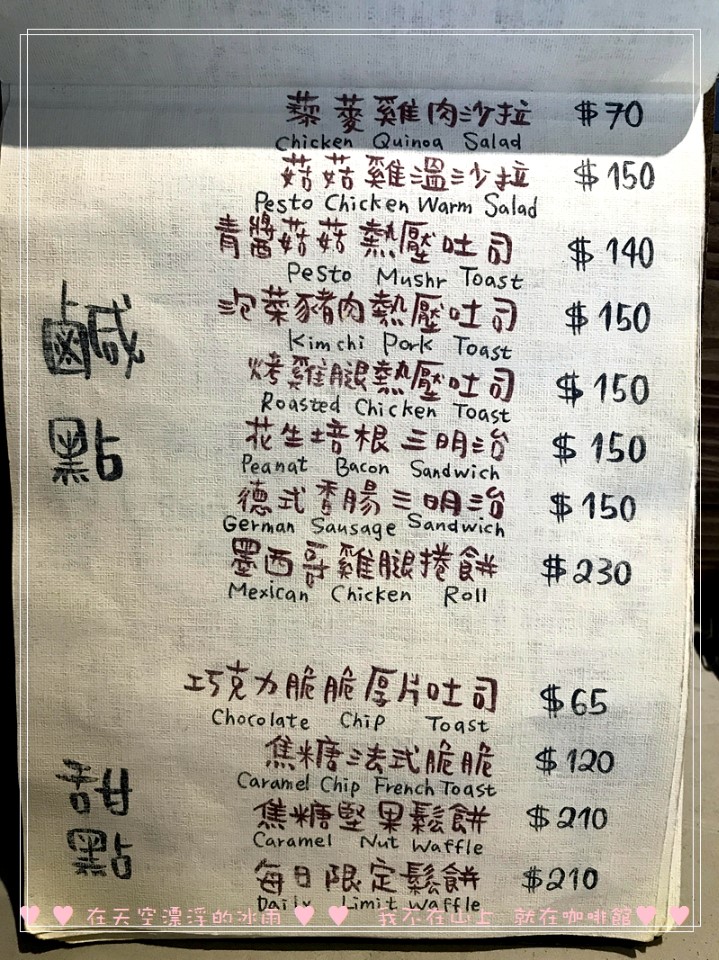 藜麥雞肉沙拉 $70
Chicken Quinoa Salad
菇菇雞溫沙拉 $150
Pesto Chicken Warm Salad
青醬菇菇熱壓吐司 $140
Pesto Mushr Toast
泡菜豬肉熱壓吐司 $150
Kimchi Pork Toast
鹹點
烤雞腿熱壓吐司 $150
Roasted Chicken Toast
花生培根三明治 $150
Peanat Bacon Sandwich
德式香腸三明治 $150
German Sausage Sandwich
墨西哥雞腿捲餅 $230
Mexican Chicken Roll
巧克力脆脆厚片吐司 $65
Chocolate Chip Toast
焦糖法式脆脆 $120
Caramel Chip French Toast
甜點
焦糖堅果鬆餅 $210
Caramel Nut Waffle
每日限定鬆餅 $210
Daily Limit Waffle
♥ ♥ 在天空漂浮的冰雨 ♥ ♥ 我不在山上 就在咖啡館 ♥ ♥